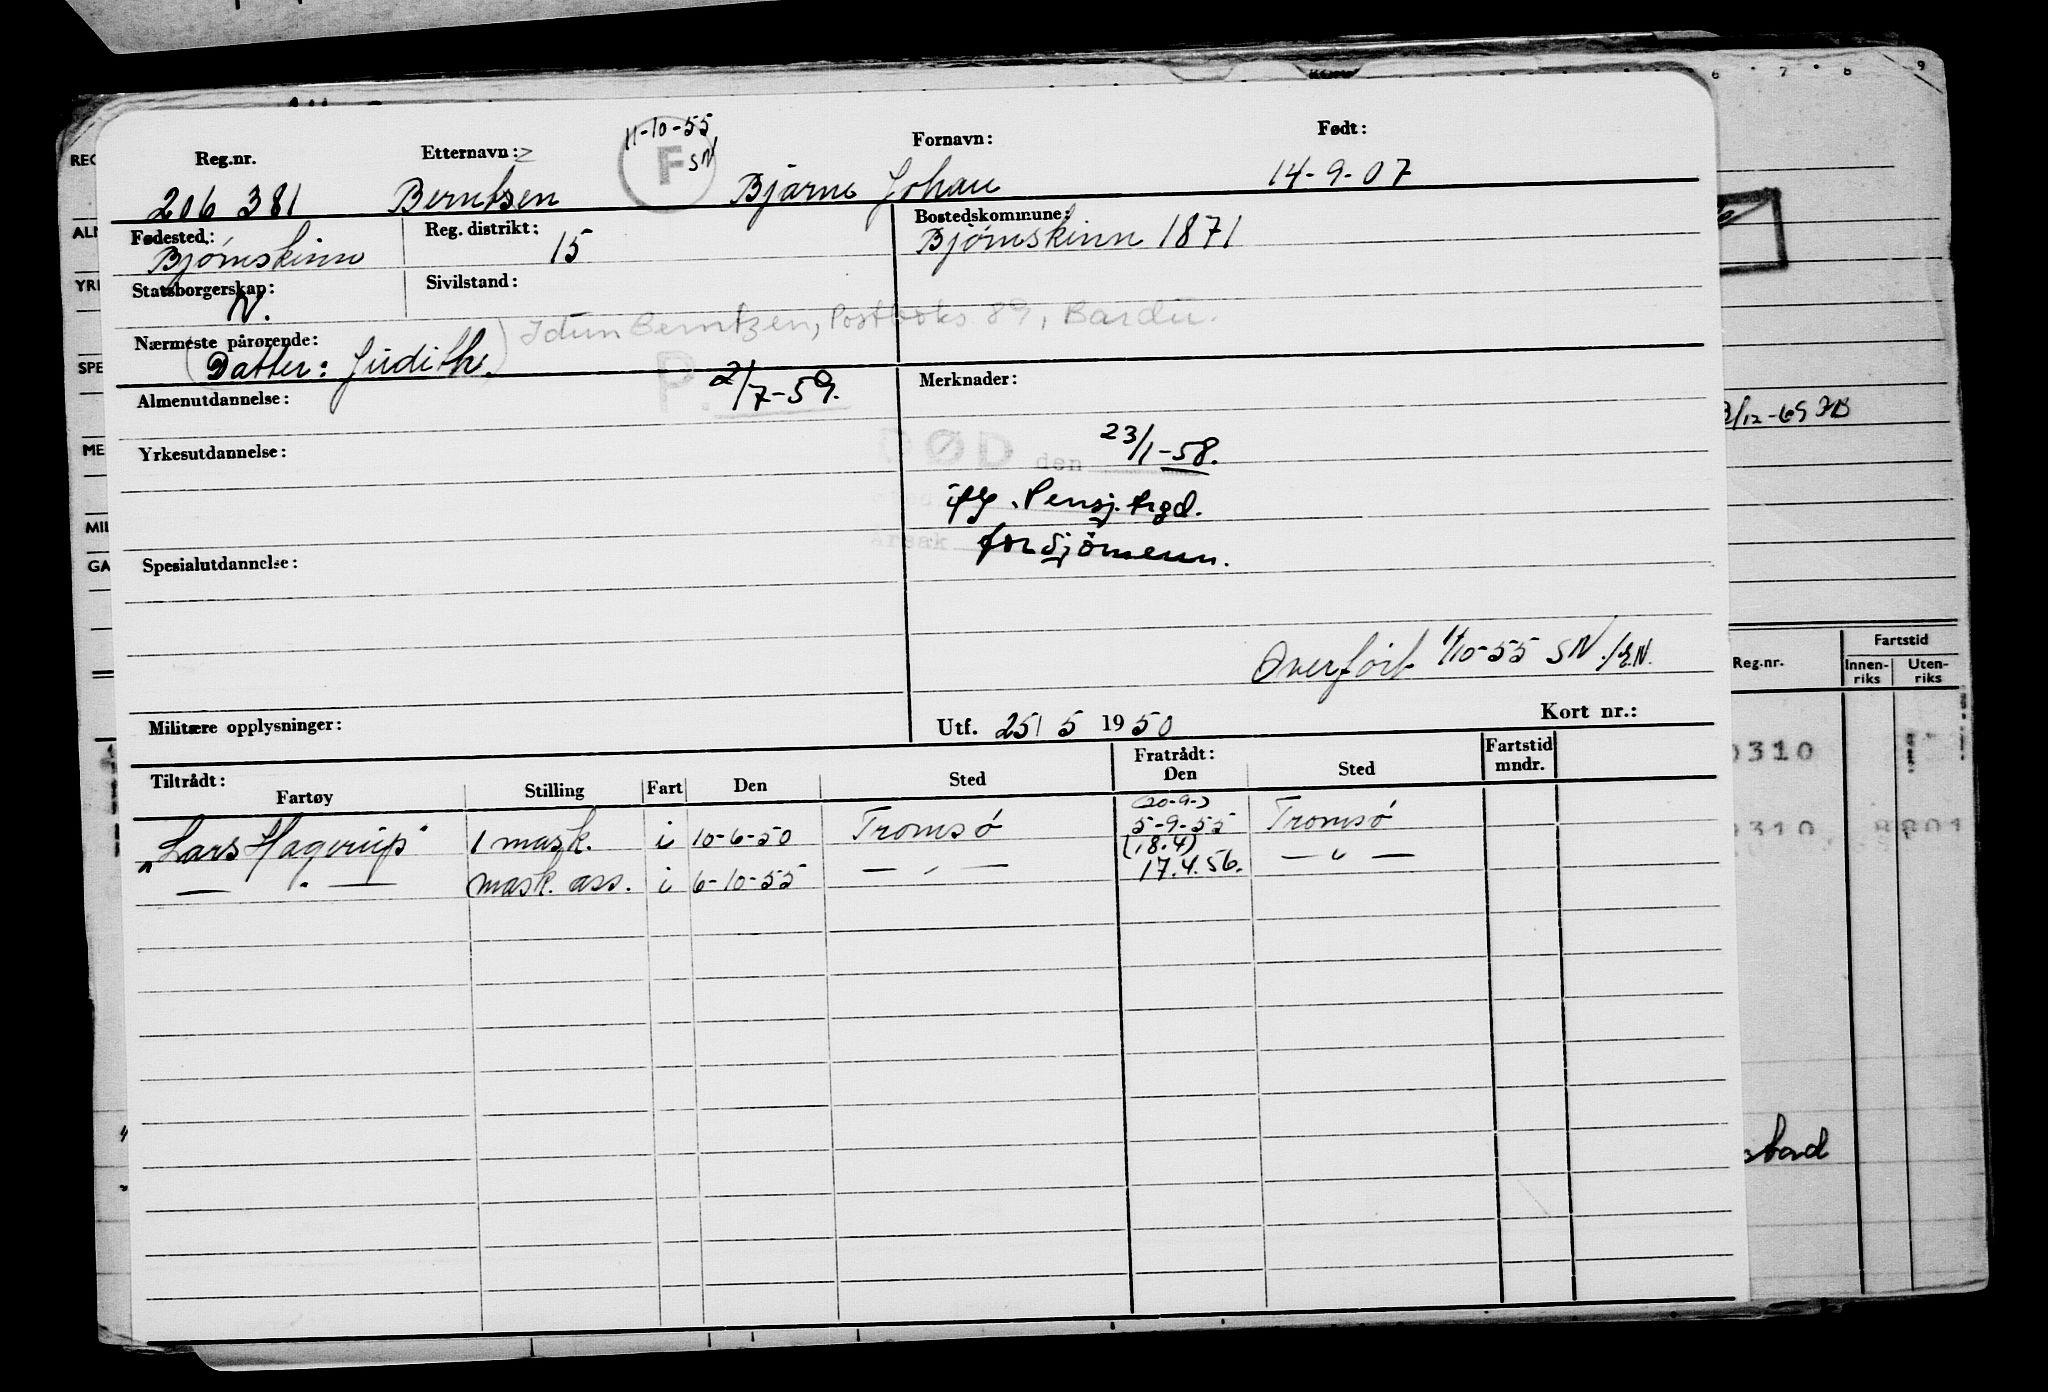 11-10-55
Reg.nr. Etternavn: F SN Fornavn: Født:
206 381 Berntzen Bjarne Johan 14-9-07
Fødested: Reg. distrikt: Bostedskommune:
Bjørnskinn 15 Bjørnskinn 1871
Statsborgerskap: Sivilstand:
N.
Idun Berntzen, Postboks 89, Bardu.
Nærmeste pårørende:
(Datter: Judith.)
P. 2/7-59.
Almenutdannelse: Merknader:
DØD den 23/1-58.
Yrkesutdannelse:
iflg. Pensj.trgd.
årsak for sjømenn.
Spesialutdannelse:
Overført 1/10-55 SN./EN.
Militære opplysninger: Utf. 25/5 1950 Kort nr.:
Tiltrådt: Fratrådt: Fartstid
Fartøy Stilling Fart Den Sted Den Sted mndr.
(20-9-)
"Lars Hagerup" 1 mask. i 10-6-50 Tromsø 5-9-55 Tromsø
(18.4)
— " — mask. ass. i 6-10-55 — " — 17.4.56. — " —
REG
ALM
YRK
SPE
ME
MIL
GA
6 7 8 9
/12-69
Fartstid
Reg.nr. Innen-riks Uten-riks
0310
0310
stad